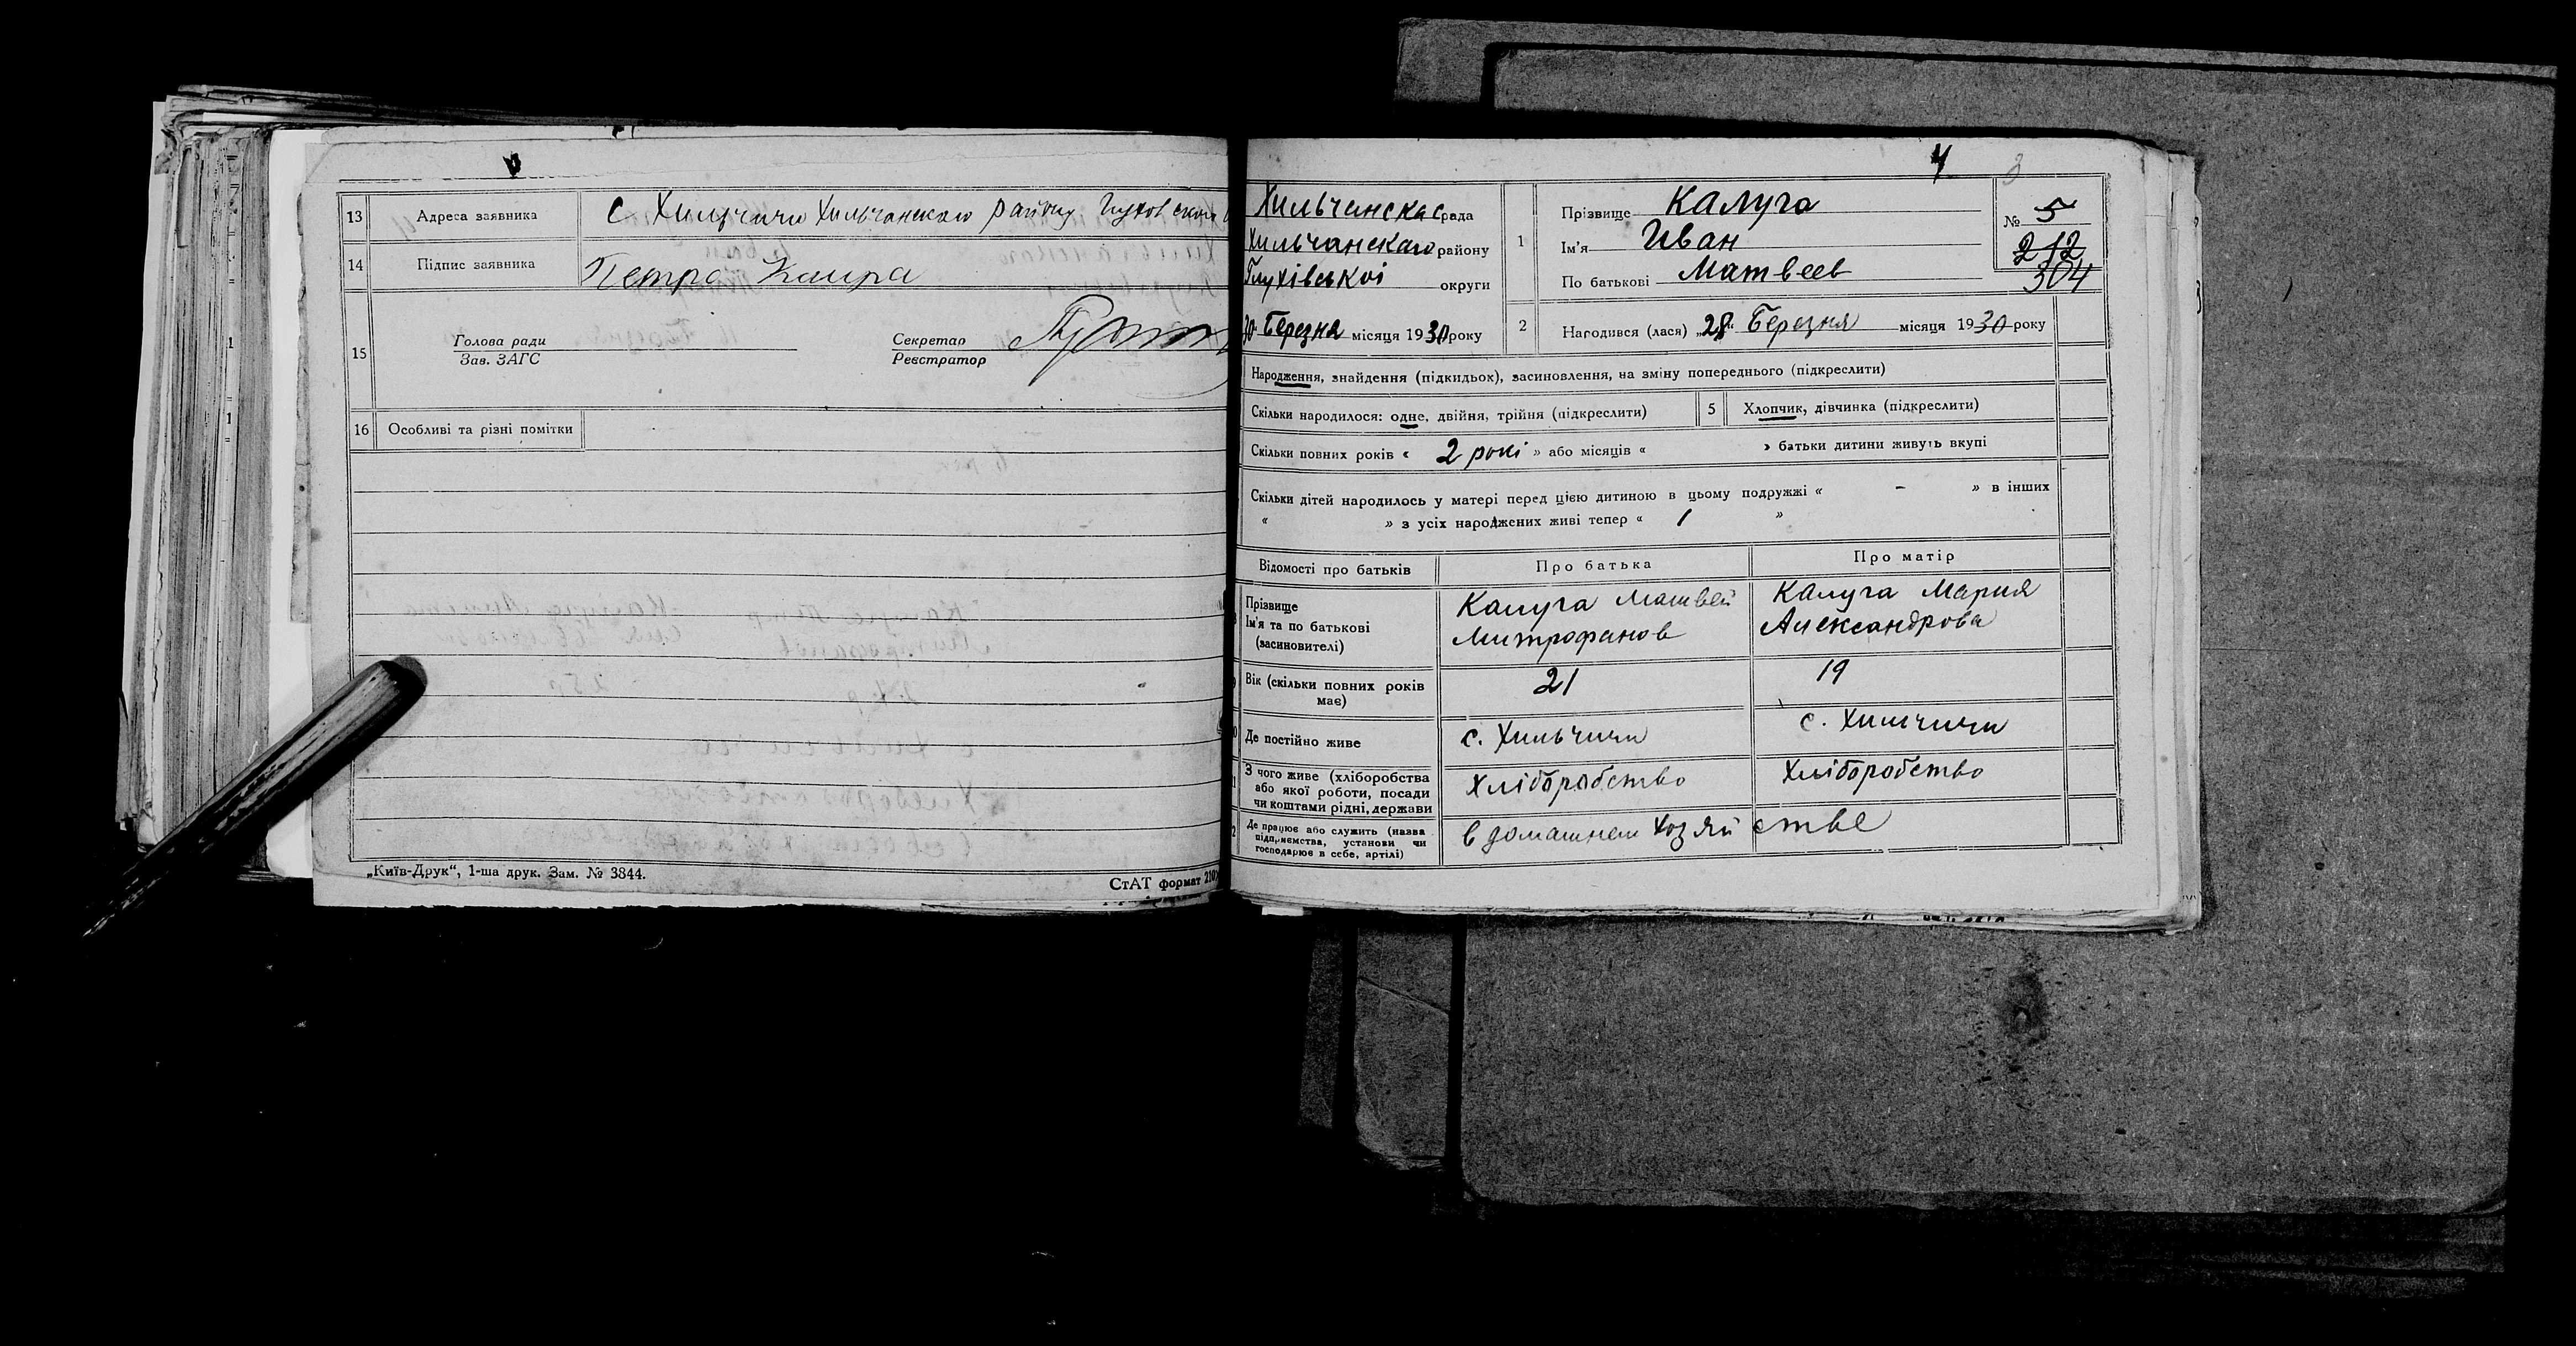 13 Адреса заявника с Хильчичи Хильчанскаго району Глуховской
14 Підпис заявника Петро Калуга
15 Голова ради
Зав. ЗАГС
Секретар
Реєстратор
16 Особливі та різні помітки
„Київ-Друк“, 1-ша друк. Зам. № 3844.
СтАТ формат 210
4 3
Хильчанская рада
Хильчанскаго району
Глухівськоі округи
30 Березня місяця 1930 року
1 Прізвище Калуга
Ім'я Иван
По батькові Матвеев
№ 5
212
304
2 Народився (лася) „28“ Березня місяця 1930 року
Народження, знайдення (підкидьок), засиновлення, на зміну попереднього (підкреслити)
Скільки народилося: одне, двійня, трійня (підкреслити) 5 Хлопчик, дівчинка (підкреслити)
Скільки повних років « 2 рокі » або місяців « » батьки дитини живуть вкупі
Скільки дітей народилось у матері перед цією дитиною в цьому подружжі « - » в інших
« » з усіх народжених живі тепер « 1 »
Відомості про батьків Про батька Про матір
Прізвище
Ім'я та по батькові
(засновителі)
Калуга Матвей
Митрофанов
Калуга Мария
Александрова
Вік (скільки повних років
має)
21 19
Де постійно живе с. Хильчичи с. Хильчичи
З чого живе (хліборобства
або якої роботи, посади
чи коштами рідні, держави
Хліборобство Хліборобство
Де працює або служить (назва
підприємства, установи чи
господарює в себе, артілі)
в домашнем хозяйстве